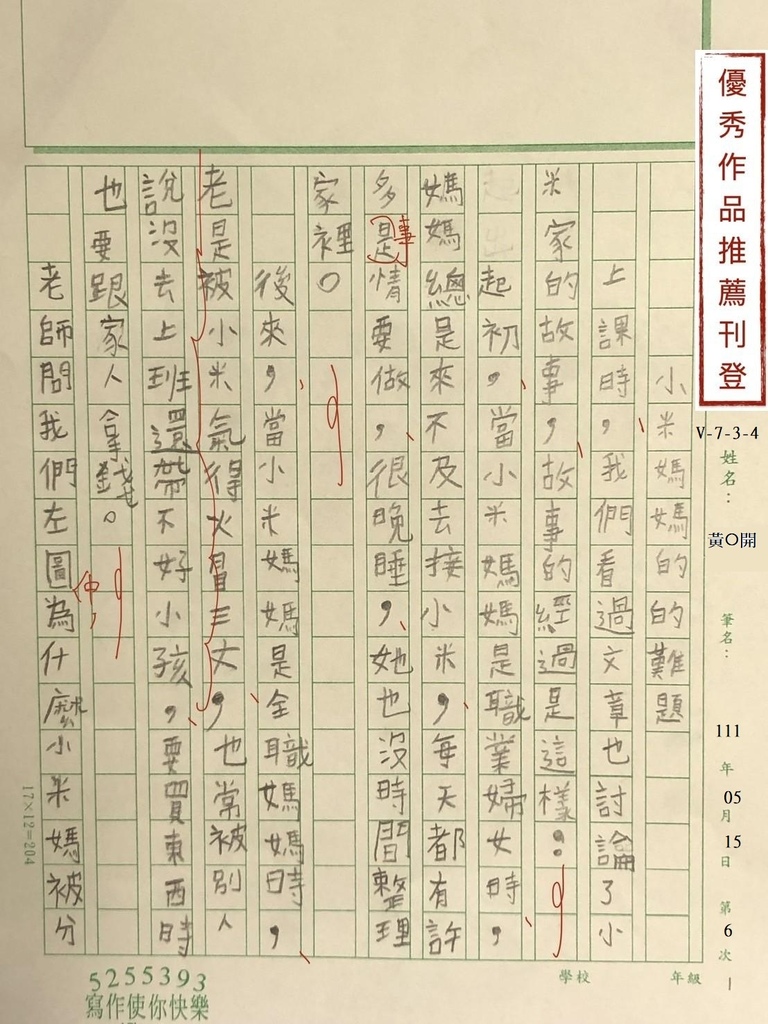 優秀作品推薦刊登
V-7-3-4
姓名：
黃O開
筆名：
111年05月15日 第6次
學校 年級
小米媽媽的的難題
上課時，我們看過文章也討論了小
米家的故事，故事的經過是這樣：
起初，當小米媽媽是職業婦女時，
媽媽總是來不及去接小米，每天都有許
多是情要做，很晚睡，她也沒時間整理
事
家裡。
後來，當小米媽媽是全職媽媽時，
老是被小米氣得火冒三丈，也常被別人
說沒去上班還帶不好小孩，要買東西時
也要跟家人拿錢。
老師問我們左圖為什麼小米媽被分
中，
17×12=204
5255393
寫作使你快樂